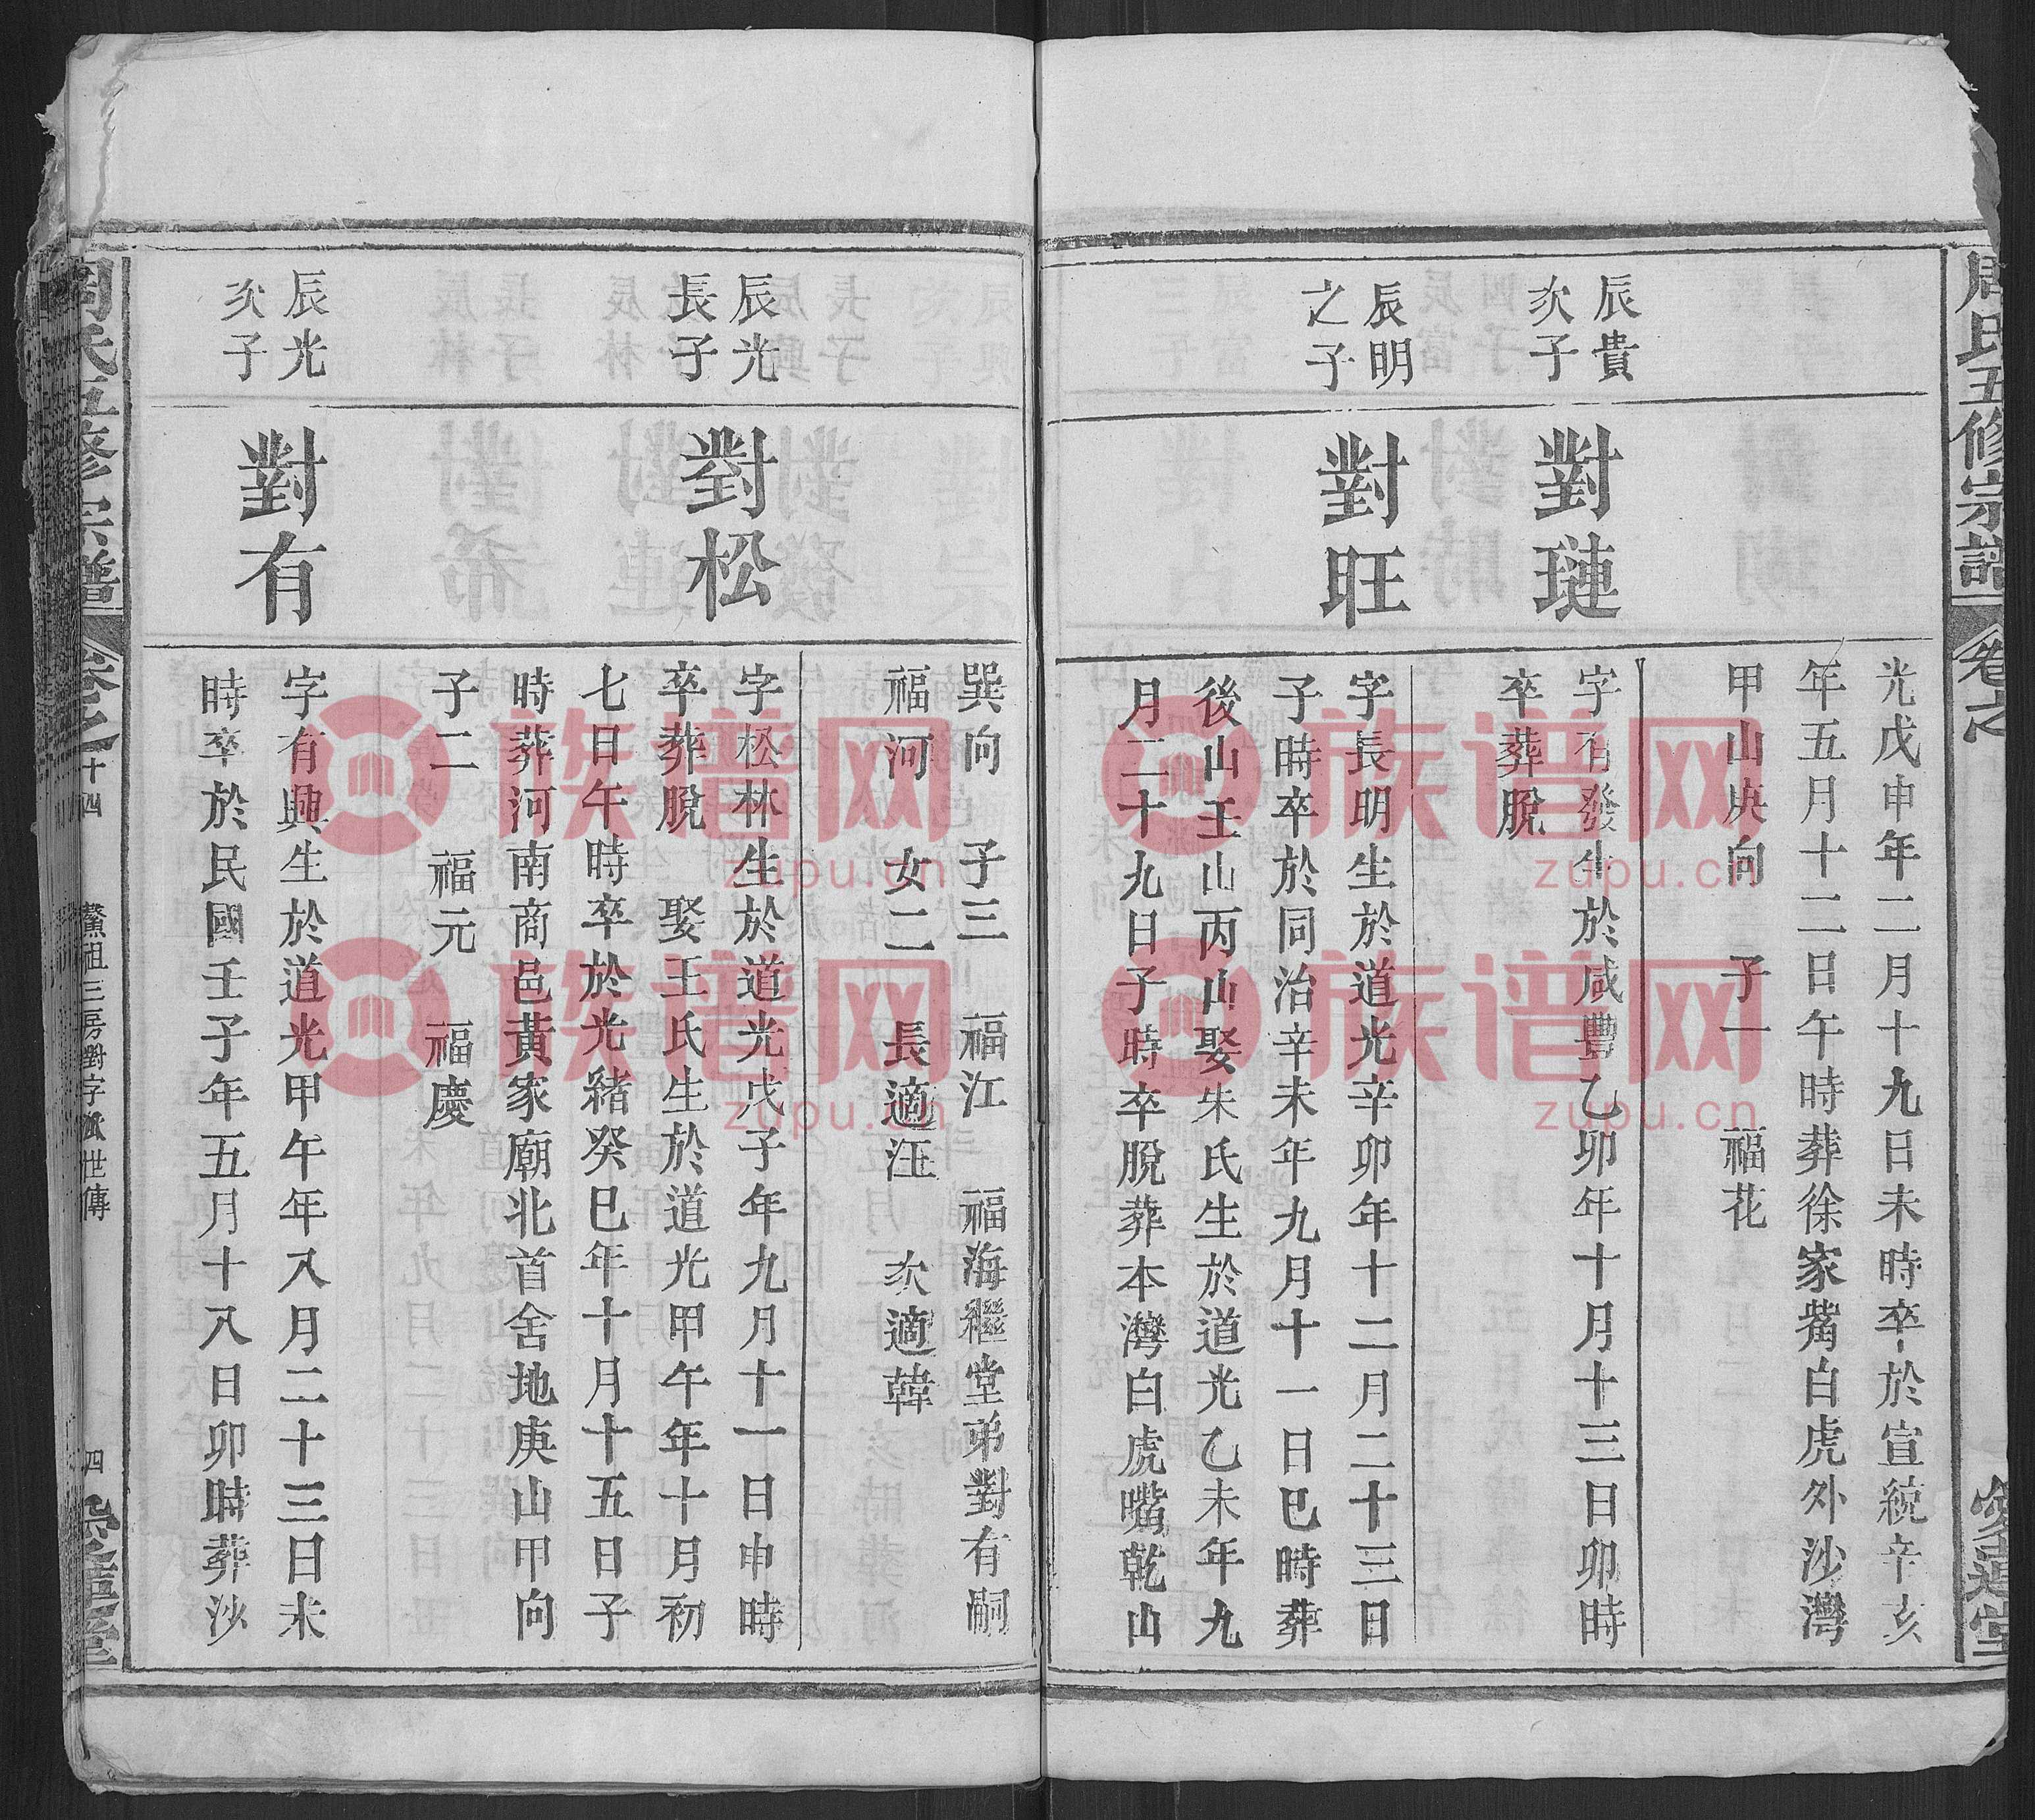 周氏五修宗譜
卷之
愛蓮堂
光戊申年二月十九日未時卒於宣統辛亥
年五月十二日午時葬徐家嘴白虎外沙灣
甲山庚向 子一 福花
辰貴
次子
對璉
字石發生於咸豐乙卯年十月十三日卯時
卒葬脫
辰明
之子
對旺
字長明生於道光辛卯年十二月二十三日
子時卒於同治辛未年九月十一日巳時葬
後山壬山丙山娶朱氏生於道光乙未年九
月二十九日子時卒脫葬本灣白虎嘴乾山
巽向 子三 福江 福海繼堂弟對有嗣
福河 女二 長適汪 次適韓
辰光
長子
對松
字松林生於道光戊子年九月十一日申時
卒葬脫 娶王氏生於道光甲午年十月初
七日午時卒於光緒癸巳年十月十五日子
時葬河南商邑黃家廟北首舍地庚山甲向
子二 福元 福慶
辰光
次子
對有
字有興生於道光甲午年八月二十三日未
時卒於民國壬子年五月十八日卯時葬沙
周氏五修宗譜
卷之十四
鰲祖三房對字派世傳
四
愛蓮堂
族谱网
zupu.cn
族谱网
zupu.cn
族谱网
zupu.cn
族谱网
zupu.cn